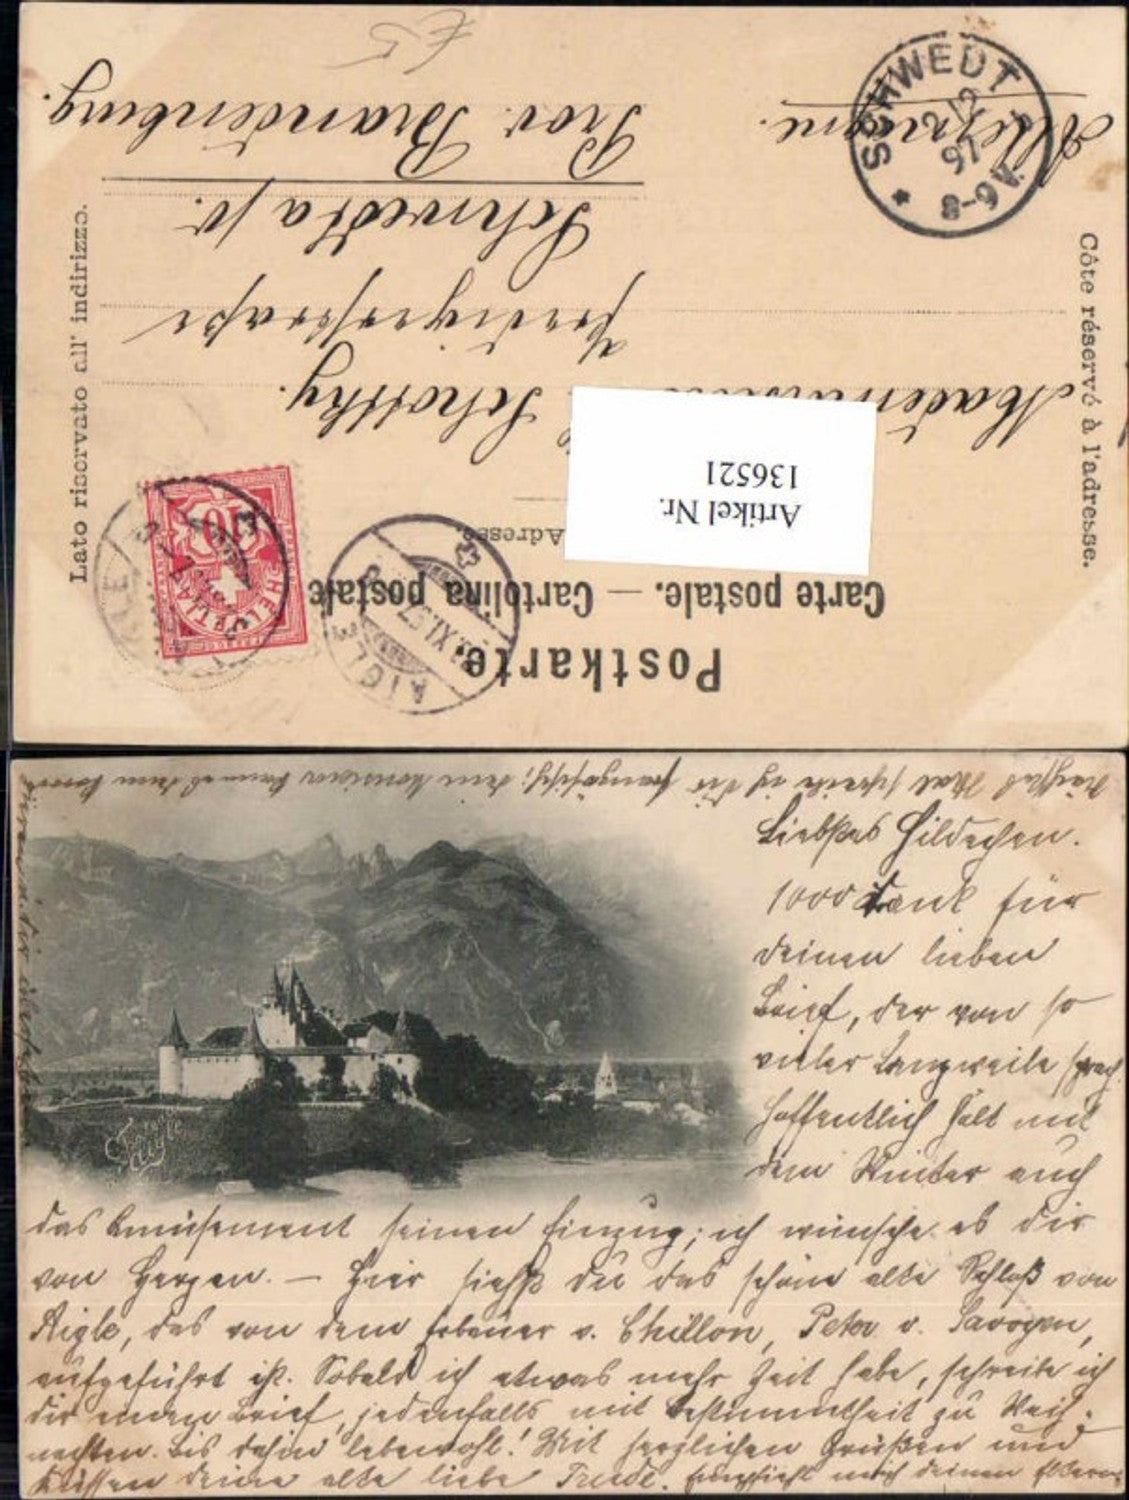 Postkarte
Carte postale. — Cartolina postale
Adresse
Artikel Nr.
136521
Côte réservé à l'adresse.
Lato riservato all' indirizzo.
Schottky.
Predigerstraße
Schwedt a/O.
Prov. Brandenburg.
Allemagne.
SCHWEDT
2 12
97
8-9V.
AIGLE
XI.97
HELVETIA
10
£5
Liebstes Hildechen.
1000 Dank für
deinen lieben
Brief, der von so
vieler Langweile sprach.
Hoffentlich hält mit
dem Winter auch
das Amüsement seinen Einzug; ich wünsche es dir
von Herzen. — Hier siehst du das schöne alte Schloß von
Aigle, das von dem Erbauer v. Chillon, Peter v. Savoyen,
aufgeführt ist. Sobald ich etwas mehr Zeit habe, schreibe ich
dir einen Brief, jedenfalls mit Bestimmtheit zu Weih-
nachten. Bis dahin lebewohl! Mit herzlichen Grüßen und
Küssen deine alte liebe Trude. Empfiehl mich deinen Eltern
Nächstes Mal schreibe ich dir französisch;